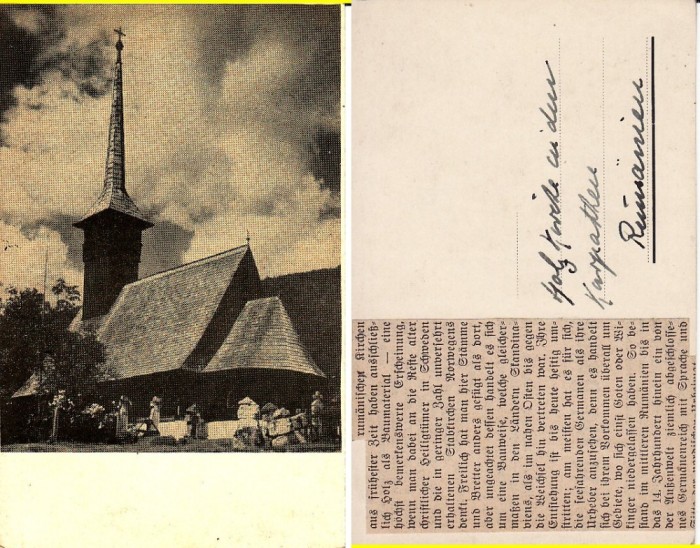 Holz Kirche in den
Karpathen
Rumänien
rumänischen Kirchen
aus frühester Zeit haben ausschließ-
lich Holz als Baumaterial — eine
höchst bemerkenswerte Erscheinung,
wenn man dabei an die Reste alter
christlicher Heiligtümer in Schweden
und die in geringer Zahl unversehrt
erhaltenen Stabkirchen Norwegens
denkt. Freilich hat man hier Stämme
und Bretter anders gefügt als dort,
aber ungeachtet dessen handelt es sich
um eine Bauweise, welche gleicher-
maßen in den Ländern Skandina-
viens, als im nahen Osten bis gegen
die Weichsel hin vertreten war. Ihre
Entstehung ist bis heute heftig um-
stritten; am meisten hat es für sich,
die seefahrenden Germanen als ihre
Urheber anzusehen, denn es handelt
sich bei ihrem Vorkommen überall um
Gebiete, wo sich einst Goten oder Wi-
kinger niedergelassen haben. So be-
stand im mittleren Rumänien bis in
das 14. Jahrhundert hinein ein von
der Außenwelt ziemlich abgeschlosse-
nes Germanenreich mit Sprache und